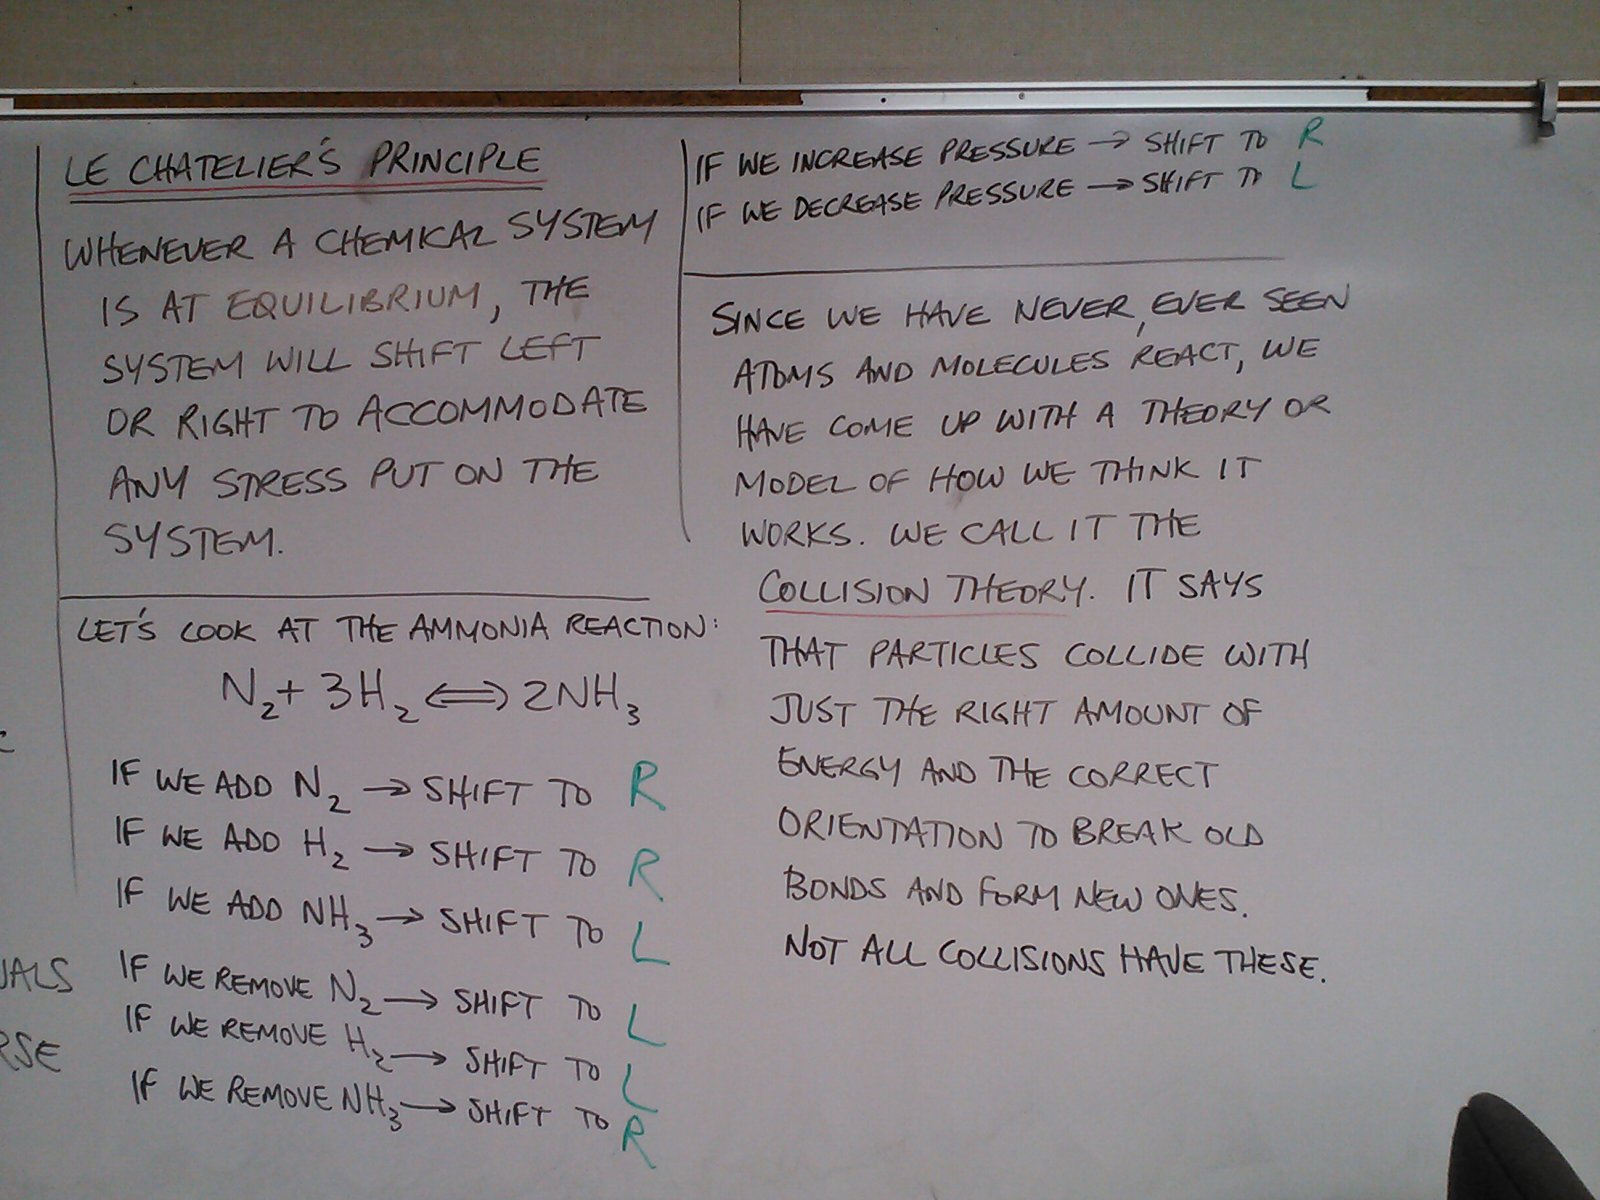 LE CHATELIER'S PRINCIPLE
WHENEVER A CHEMICAL SYSTEM
IS AT EQUILIBRIUM, THE
SYSTEM WILL SHIFT LEFT
OR RIGHT TO ACCOMMODATE
ANY STRESS PUT ON THE
SYSTEM.
LET'S LOOK AT THE AMMONIA REACTION:
N₂ + 3H₂ ⇔ 2NH₃
IF WE ADD N₂ → SHIFT TO R
IF WE ADD H₂ → SHIFT TO R
IF WE ADD NH₃ → SHIFT TO L
IF WE REMOVE N₂ → SHIFT TO L
IF WE REMOVE H₂ → SHIFT TO L
IF WE REMOVE NH₃ → SHIFT TO R
IF WE INCREASE PRESSURE → SHIFT TO R
IF WE DECREASE PRESSURE → SHIFT TO L
SINCE WE HAVE NEVER, EVER SEEN
ATOMS AND MOLECULES REACT, WE
HAVE COME UP WITH A THEORY OR
MODEL OF HOW WE THINK IT
WORKS. WE CALL IT THE
COLLISION THEORY. IT SAYS
THAT PARTICLES COLLIDE WITH
JUST THE RIGHT AMOUNT OF
ENERGY AND THE CORRECT
ORIENTATION TO BREAK OLD
BONDS AND FORM NEW ONES.
NOT ALL COLLISIONS HAVE THESE.